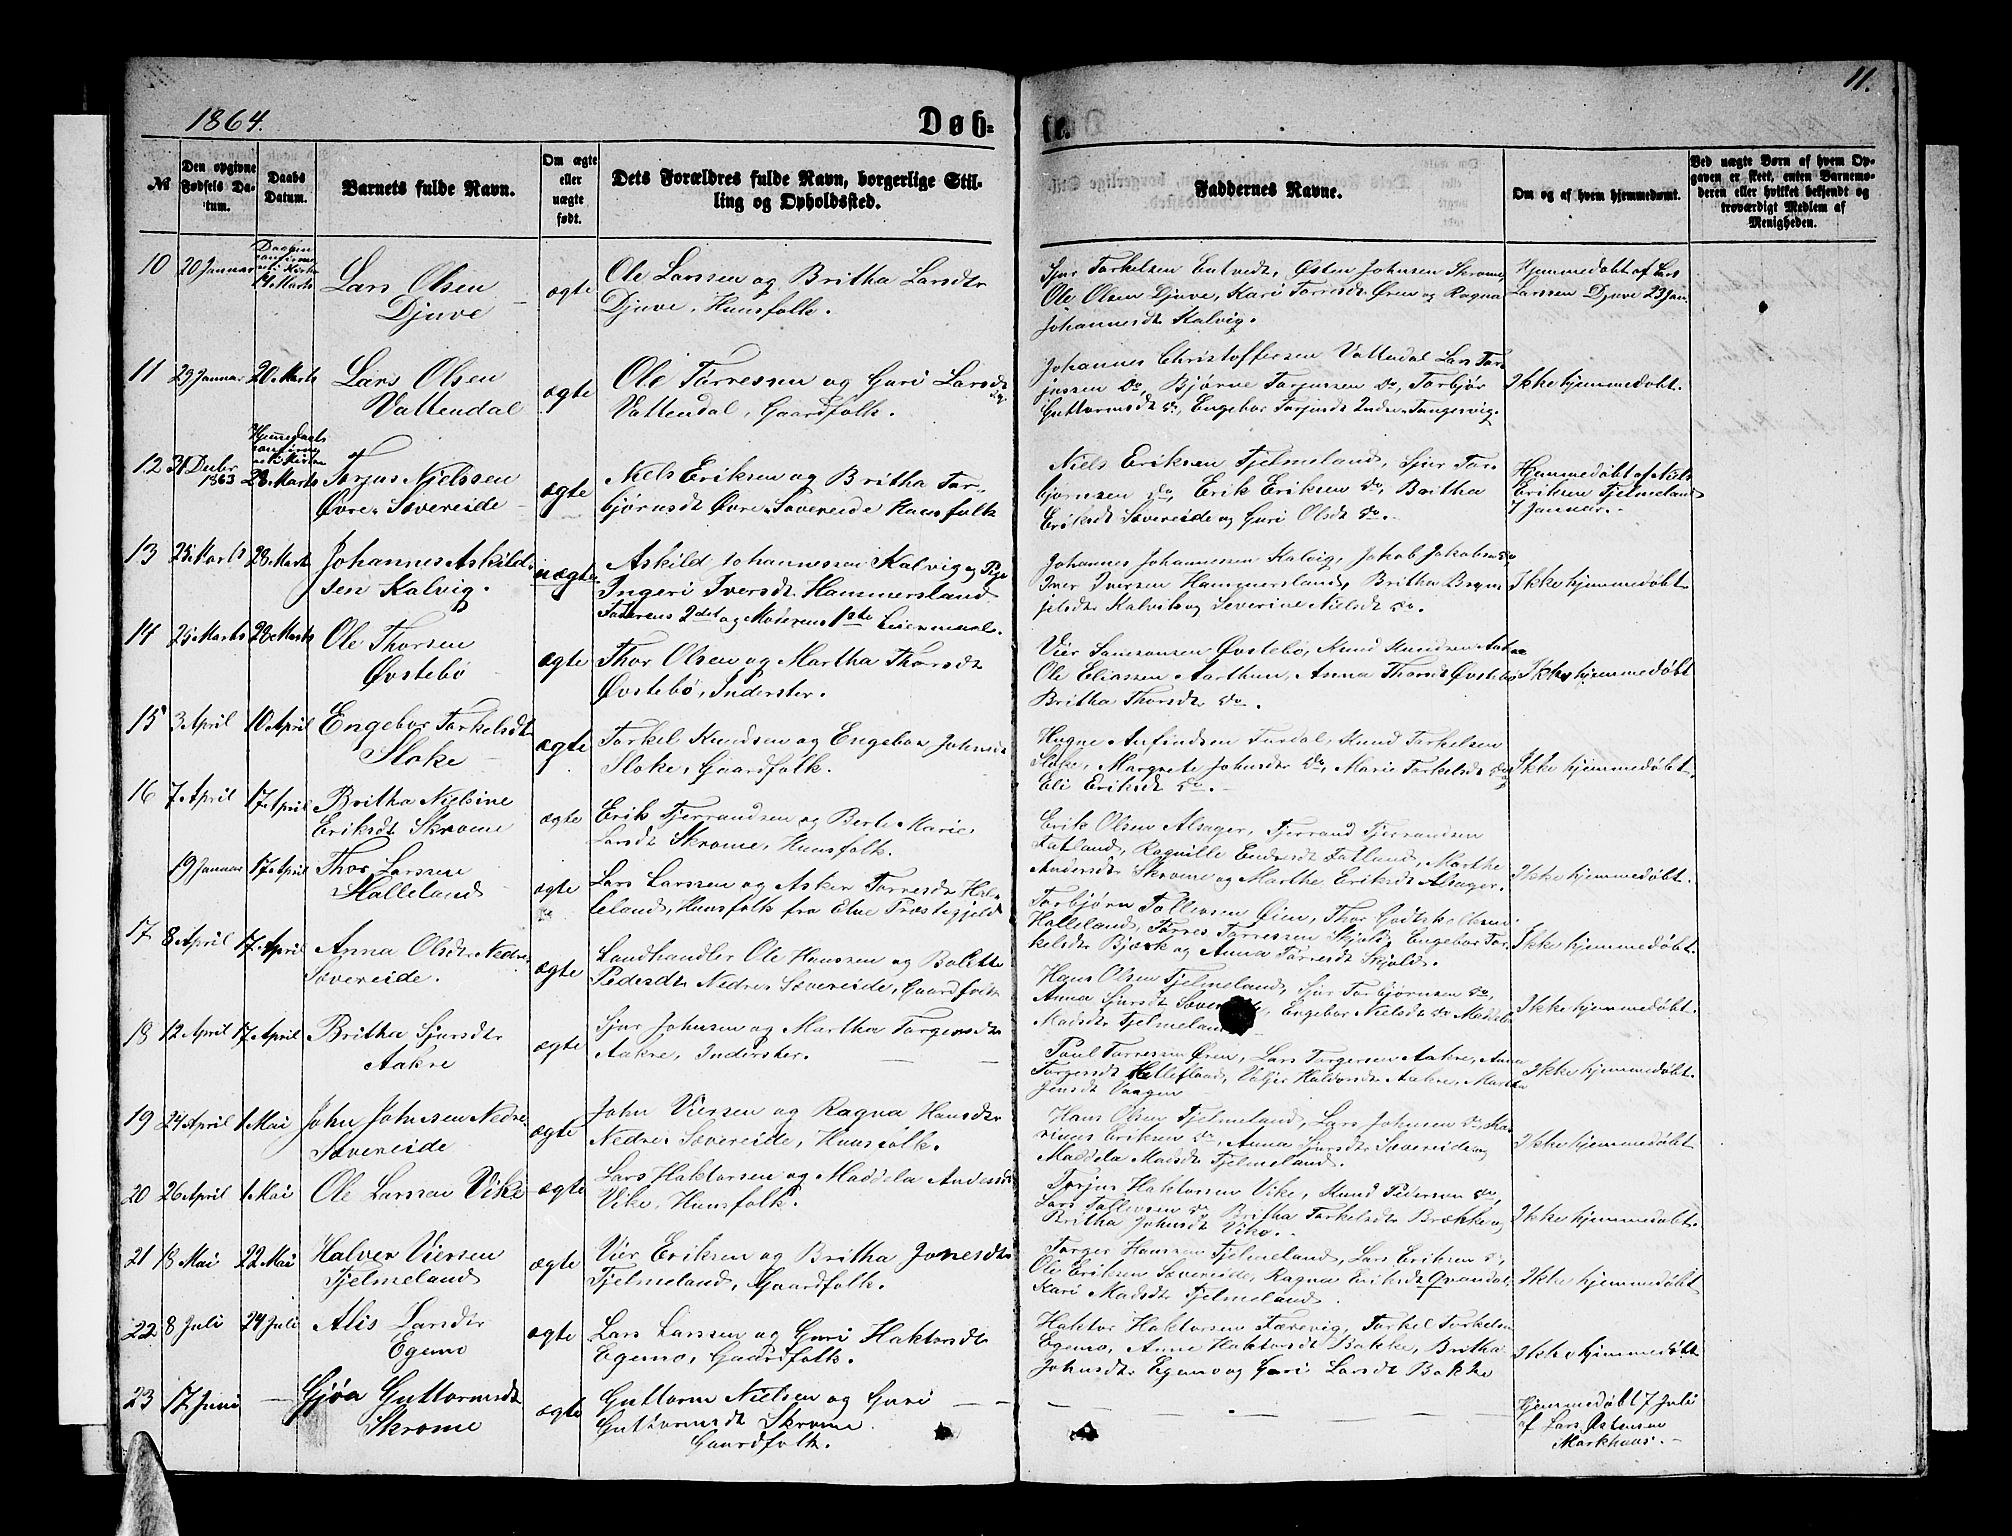 1864.
Døb=
te.
11.
№
Den opgivne Fødsels Datum.
Daabs Datum.
Barnets fulde Navn.
Om ægte eller uægte født.
Dets Forældres fulde Navn, borgerlige Stilling og Opholdssted.
Faddernes Navne.
Om og af hvem hjemmedømt.
Ved uægte Børn af hvem Opgaven er skeet, enten Barnemoderen eller hvilket bekjendt og troværdigt Medlem af Menigheden.
10 20 Januar
14 Marts
Lars Olsen
Djuve
ægte
Ole Larssen og Britha Larsdtr
Djuve, Huusfolk.
Sjur Torkelsen Entvedt, Østen Johnsen Skrome,
Ole Olsen Djuve, Kari Torresdt Øren og Ragna
Johannesdt Kalvig.
Hjemmedøbt af Lars
Larssen Djuve 23 Jan.
11 29 Januar 20 Marts
Lars Olsen
Vattendal
ægte
Ole Tørressen og Guri Larsdt
Vattendal, Gaardfolk.
Johannes Christoffersen Vattedal Lars Tor-
jussen do, Bjørne Torjussen do, Torbjør
Guttormsdt do, Engebor Torjusdt Indre Tungesvig.
Ikke hjemmedøbt.
12 31 Decbr 1863
28 Marts
Torjus Nielssen
Øvre Sævereide
ægte
Niels Eriksen og Britha Tor-
bjørnsdt Øvre Sævereide Huusfolk
Niels Eriksen Fjelmeland, Sjur Tor-
bjørnsen do, Erik Eriksen do, Britha
Eriksdt Sævereide og Guri Olsdt do.
Hjemmedøbt af Niels
Eriksen Fjelmeland
7 Januar.
13 25 Marts 28 Marts
Johannes Askild-
sen Kalvig.
uægte
Askild Johannessen Kalvig og Pige
Ingeri Iversdt Hammersland
Faderens 2det og Moderens 1ste Leiermaal.
Johannes Johannessen Kalvig, Jakob Jakobsen do
Iver Iversen Hammersland, Britha Bryn-
jelsdtr Kalvik og Severine Nielsdt do.
Ikke hjemmedøbt
14 25 Marts 28 Marts
Ole Thorsen
Øvstebø
ægte
Thor Olsen og Martha Thorsdt
Øvstebø, Inderster.
Vier Samsonsen Øvstebø, Knud Knudsen
Ole Eliassen Aarthun, Anna Thorsdt Øvstebø
Britha Thorsdt do.
Ikke hjemmedøbt
15 3 April 10 April
Engebor Torkelsdt
Sloke
ægte
Torkel Knudsen og Engebor Johnsdt
Sloke, Gaardfolk.
Hugne Anfindsen Furdal, Knud Torkelsen
Sloke, Margrete Johnsdtr do, Marie Torkelsdt do
Eli Eriksdt do.
Ikke hjemmedøbt.
16 7 April 17 April
Britha Nielsine
Eriksdt Skrome
ægte
Erik Fjerrandsen og Berte Marie
Larsdt Skrome, Huusfolk.
Erik Olsen Alsager, Fjerrand Fjerrandsen
Fatland, Ragnille Endresdt Fatland, Marthe
Andersdtr Skrome og Marthe Eriksdt Alsager.
Ikke hjemmedøbt.
19 Januar 17 April
Thor Larssen
Halleland
ægte
Lars Larssen og Asker Torresdt Hal-
leland, Huusfolk fra Etne Præstegjeld
Torbjørn Tollevsen Øien, Thor Godtskalksen
Halleland, Torres Torressen Skjold, Engebor Tor-
kelsdtr Bjørk og Anna Torresdt Skjold.
Ikke hjemmedøbt.
17 8 April 17 April
Anna Olsdtr Nedre
Sævereide.
ægte
Landhandler Ole Hanssen og Bolette
Pedersdt Nedre Sævereide, Gaardfolk
Hans Olsen Fjelmeland, Sjur Torbjørnsen do,
Anna Sjursdt Sævereide, Engebor Nielsdt do Maddela
Madsdtr Fjelmeland
Ikke hjemmedøbt.
18 12 April 17 April
Britha Sjursdtr
Aakre
ægte
Sjur Johnsen og Martha Torgersdtr
Aakre, Inderster.
Poul Torressen Øren, Lars Torgersen Aakre, Anna
Torgersdt Halleland, Valjer Haldorsdt Aakre, Martha
Jensdt Vaagen
Ikke hjemmedøbt.
19 24 April 1 Mai
John Johnsen Nedre
Sævereide
ægte
John Viersen og Ragna Hansdtr
Nedre Sævereide, Huusfolk.
Hans Olsen Fjelmeland, Lars Johnsen do, Ma-
rinus Eriksen do, Anna Sjursdt Sævereide og
Maddela Madsdt Fjelmeland.
Ikke hjemmedøbt
20 26 April 1 Mai
Ole Larssen Vike
ægte
Lars Haktorsen og Maddela Andersdt
Vike, Huusfolk.
Torjus Haktorsen Vike, Knud Pedersen do,
Lars Tollevsen do Britha Torkelsdtr Brække og
Britha Johnsdt Vike.
Ikke hjemmedøbt.
21 18 Mai 22 Mai
Halver Viersen
Fjelmeland
ægte
Vier Eriksen og Britha Jonesdtr
Fjelmeland, Gaardfolk.
Torger Hanssen Fjelmeland, Lars Eriksen do,
Ole Eriksen Sævereide, Ragna Eriksdt Qvandal
Kari Madsdt Fjelmeland.
Ikke hjemmedøbt
22 8 Juli 24 Juli
Alis Larsdtr
Egemo
ægte
Lars Larssen og Guri Haktorsdt
Egemo, Gaardfolk.
Haktor Haktorsen Færevig, Torkel Torkelsen
Egemo, Anne Haktorsdt Bakke, Britha
Johnsdtr Egemo og Guri Larsdt Bakke
Ikke hjemmedøbt
23 17 Juni —
Gjøa Guttormsdt
Skrome
ægte
Guttorm Nielsen og Guri
Guttormsdt Skrome
Gaardfolk.
Hjemmedøbt 7 Juli
af Lars Østensen
Markhuus.